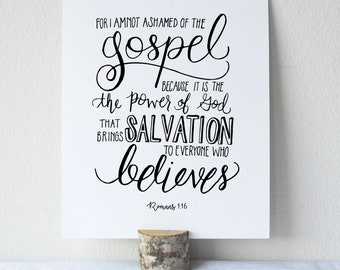 FOR I AM NOT ASHAMED OF THE
gospel
BECAUSE IT IS THE
the power of God
THAT
BRINGS SALVATION
TO EVERYONE WHO
believes
Romans 1:16